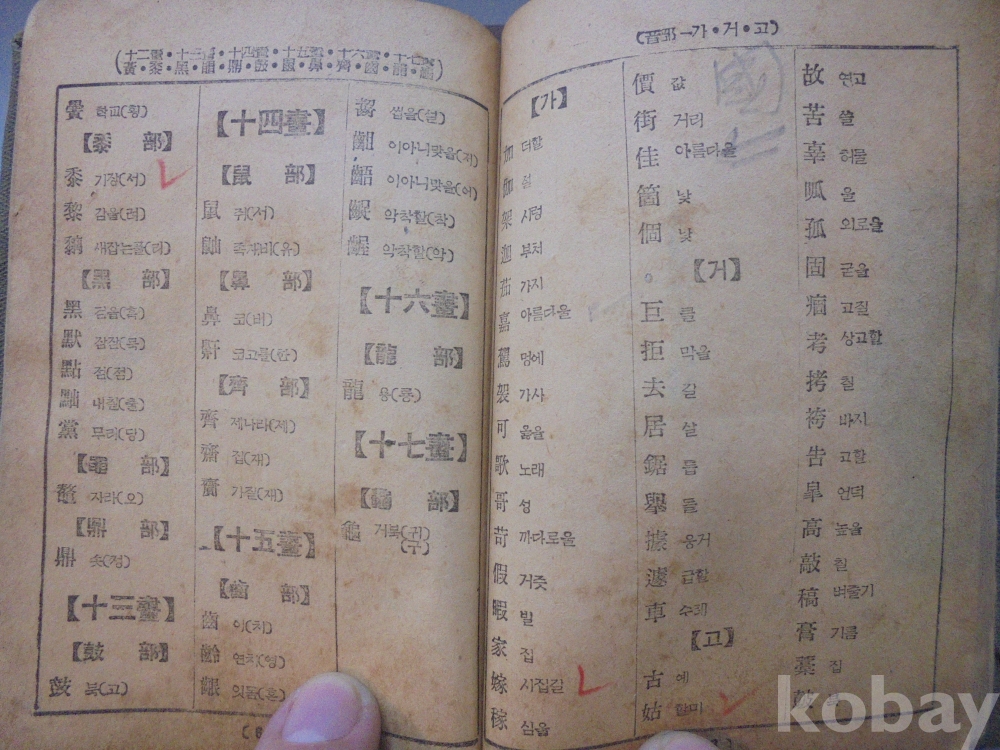 黌 학교(횡)
【黍部】
黍 기장(서)
黎 감을(려)
黐 새잡는풀(리)
【黑部】
黑 검을(흑)
默 잠잠(묵)
點 점(점)
黜 내칠(출)
黨 무리(당)
【黽部】
鼇 자라(오)
【鼎部】
鼎 솟(정)
【十三畫】
【鼓部】
鼓 북(고)
【十四畫】
【鼠部】
鼠 쥐(서)
鼬 족재비(유)
【鼻部】
鼻 코(비)
鼾 코고를(한)
【齊部】
齊 제나라(제)
齋 집(재)
齎 가질(재)
【十五畫】
【齒部】
齒 이(치)
齡 연치(령)
齦
齧 씹을(설)
이아니맞을(저)
齬 이아니맞을(어)
齪 악착할(착)
齷 악착할(악)
【十六畫】
【龍部】
龍 용(룡)
【十七畫】
【龜部】
龜 거북(귀)(구)
(音部一가·거·고)
【가】
加 더할
伽 절
架 시렁
迦 부처
茄 가지
嘉 아름다울
駕 멍에
袈 가사
可 옳을
歌 노래
哥 성
苛 까다로울
假 거즛
暇 빌
家 집
嫁 시집갈
稼 심을
價 값
街 거리
佳 아름다울
箇 낯
個 낯
【거】
巨 클
拒 막을
去 갈
居 살
鋸 톱
擧 들
據 웅거
遽 급할
車 수레
【고】
古 예
姑 할미
國
故 연고
苦 쓸
辜 허물
呱 울
孤 외로울
固 굳을
痼 고질
考 상고할
拷 칠
袴 바지
告 고할
皐 언덕
高 높을
敲 칠
稿 벼줄기
膏 기름
藁 집
kobay